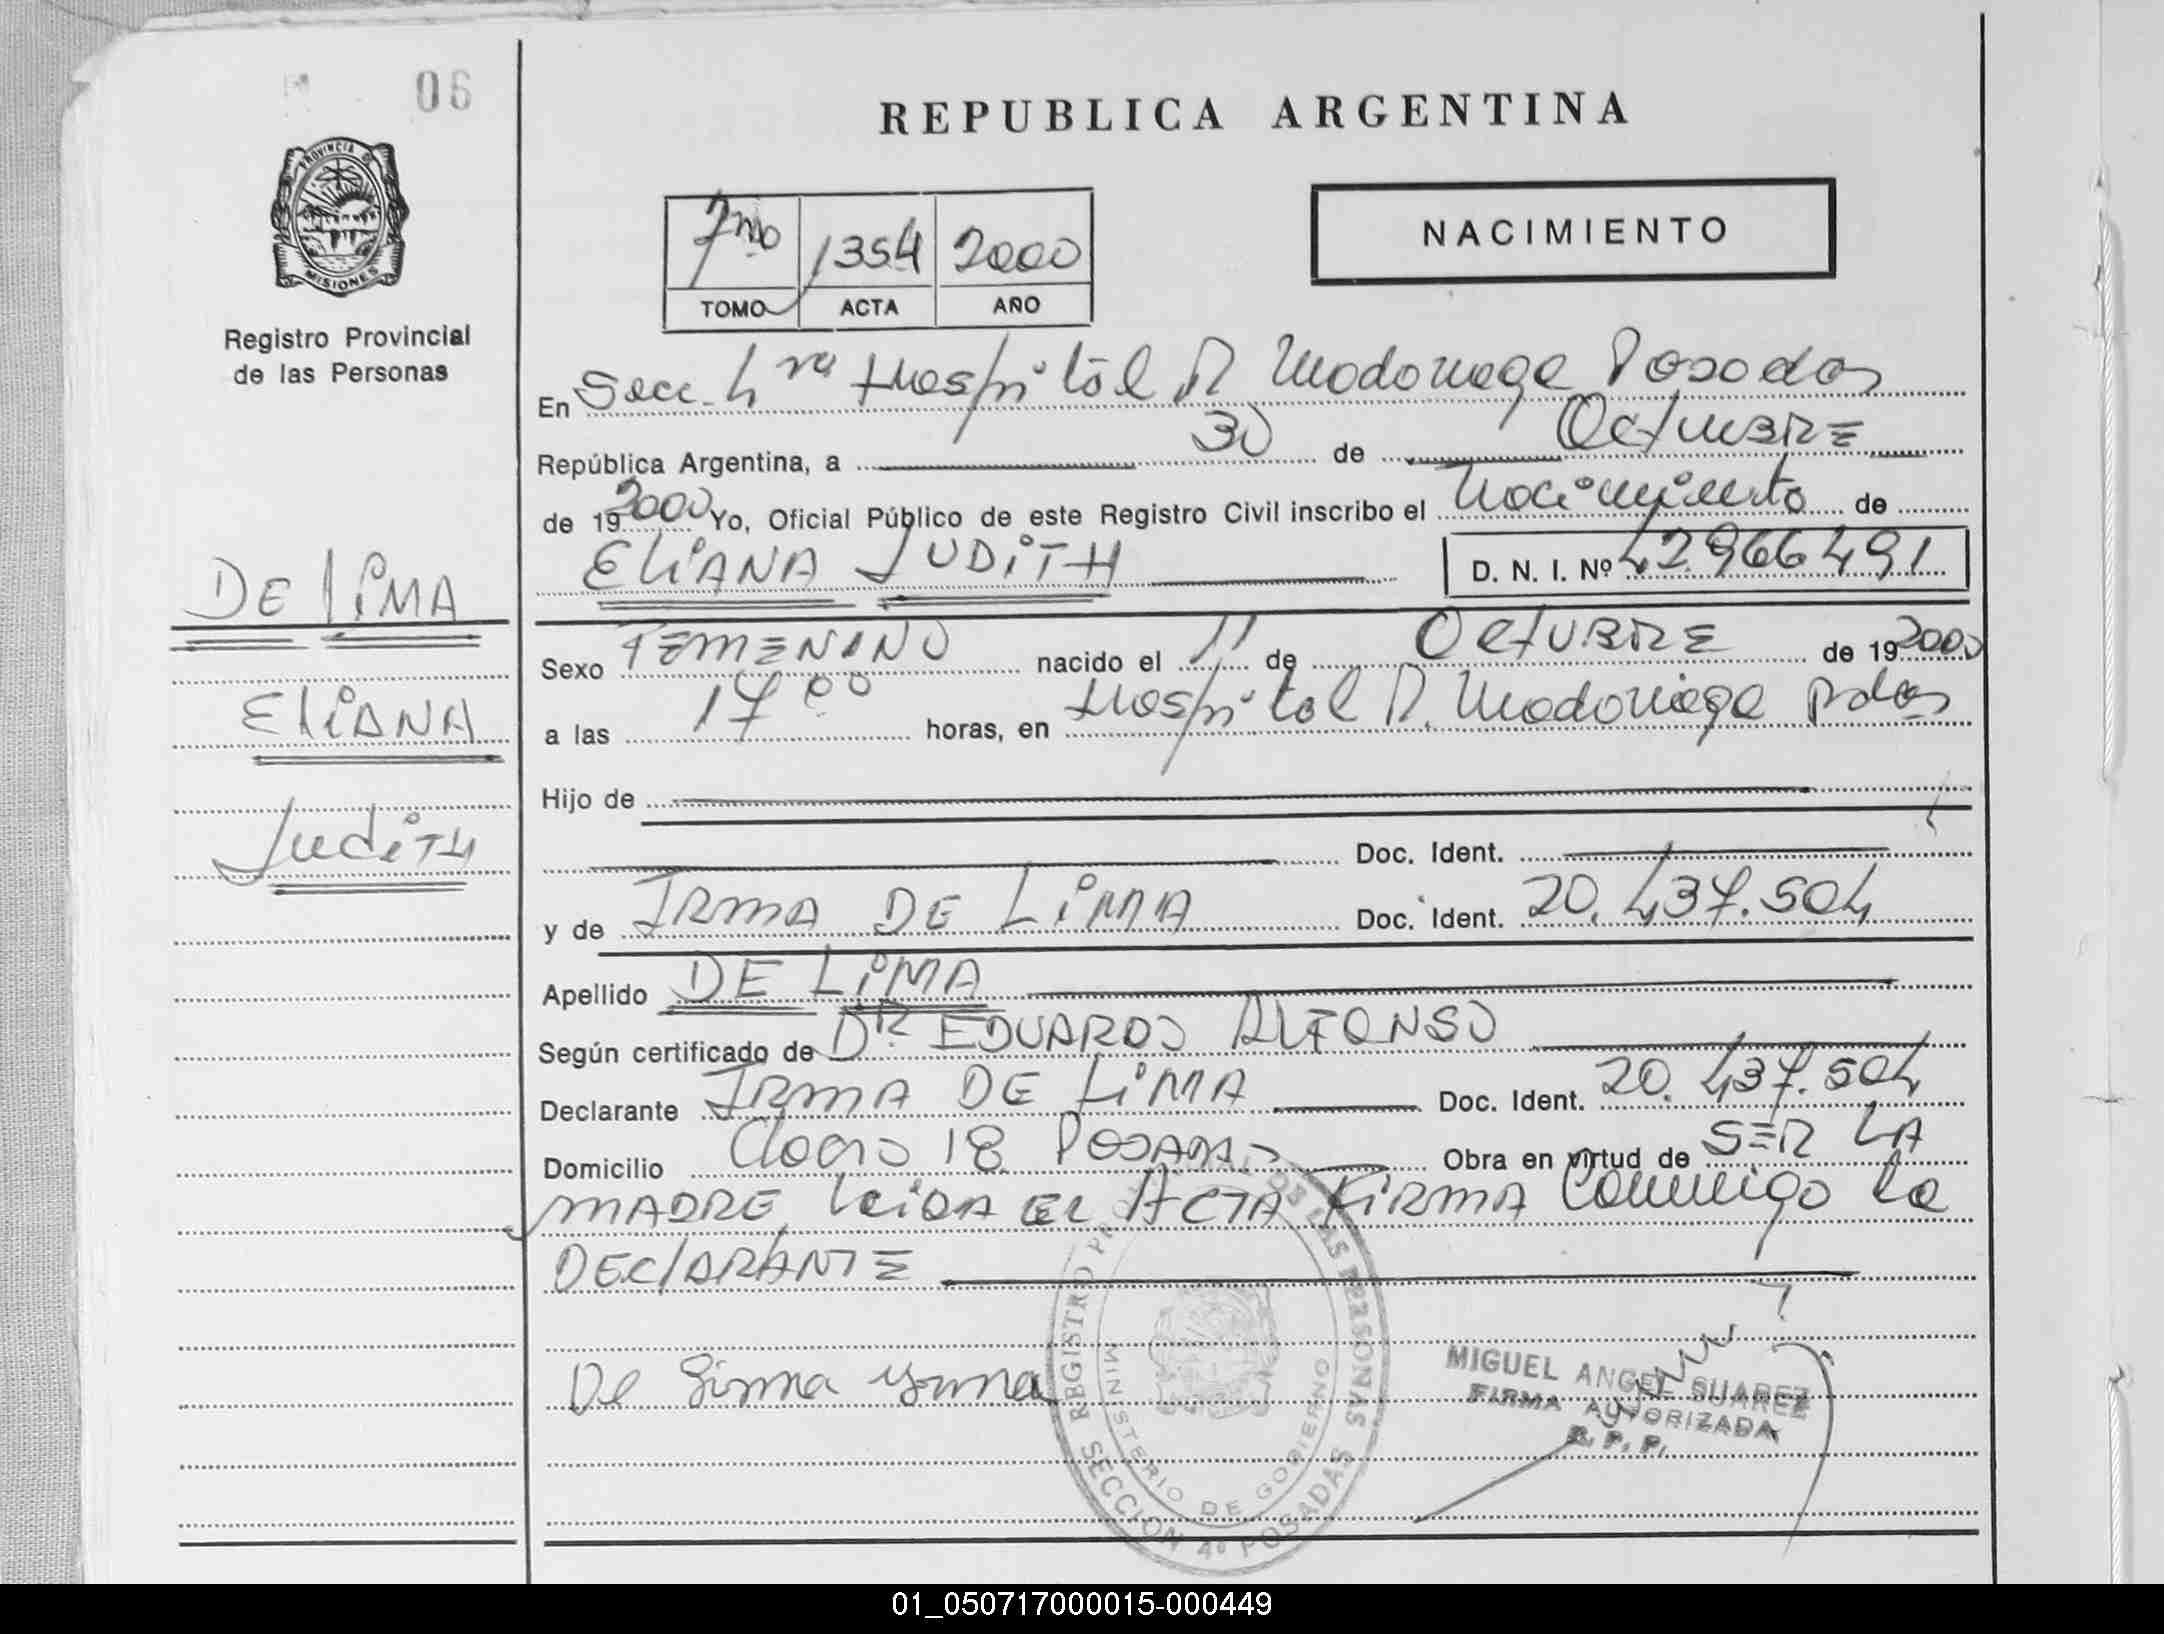 06
REPUBLICA ARGENTINA
PROVINCIA DE
MISIONES
Registro Provincial
de las Personas
7mo 1354 2000
TOMO ACTA AÑO
NACIMIENTO
En Secc. 4ta Hospital R Madariaga Posadas
República Argentina, a 30 de Octubre
de 19 2000 Yo, Oficial Público de este Registro Civil inscribo el Nacimiento de
ELIANA JUDITH D. N. I. Nº 42966491
DE LIMA
ELIANA
Judith
Sexo FEMENINO nacido el 11 de Octubre de 19 2000
a las 17 00 horas, en Hospital R. Madariaga Pdas
Hijo de
Doc. Ident.
y de IRMA DE LIMA Doc. Ident. 20.437.504
Apellido DE LIMA
Según certificado de DR EDUARDO ALFONSO
Declarante IRMA DE LIMA Doc. Ident. 20.437.504
Domicilio 18 POSADAS Obra en virtud de SER LA
MADRE, Leida EL ACTA FIRMA Conmigo la
DECLARANTE
De Lima Yrma
REGISTRO PROVINCIAL DE LAS PERSONAS
MINISTERIO DE GOBIERNO
SECCION 4º POSADAS
MIGUEL ANGEL SUAREZ
FIRMA AUTORIZADA
R. P. P.
01_050717000015-000449